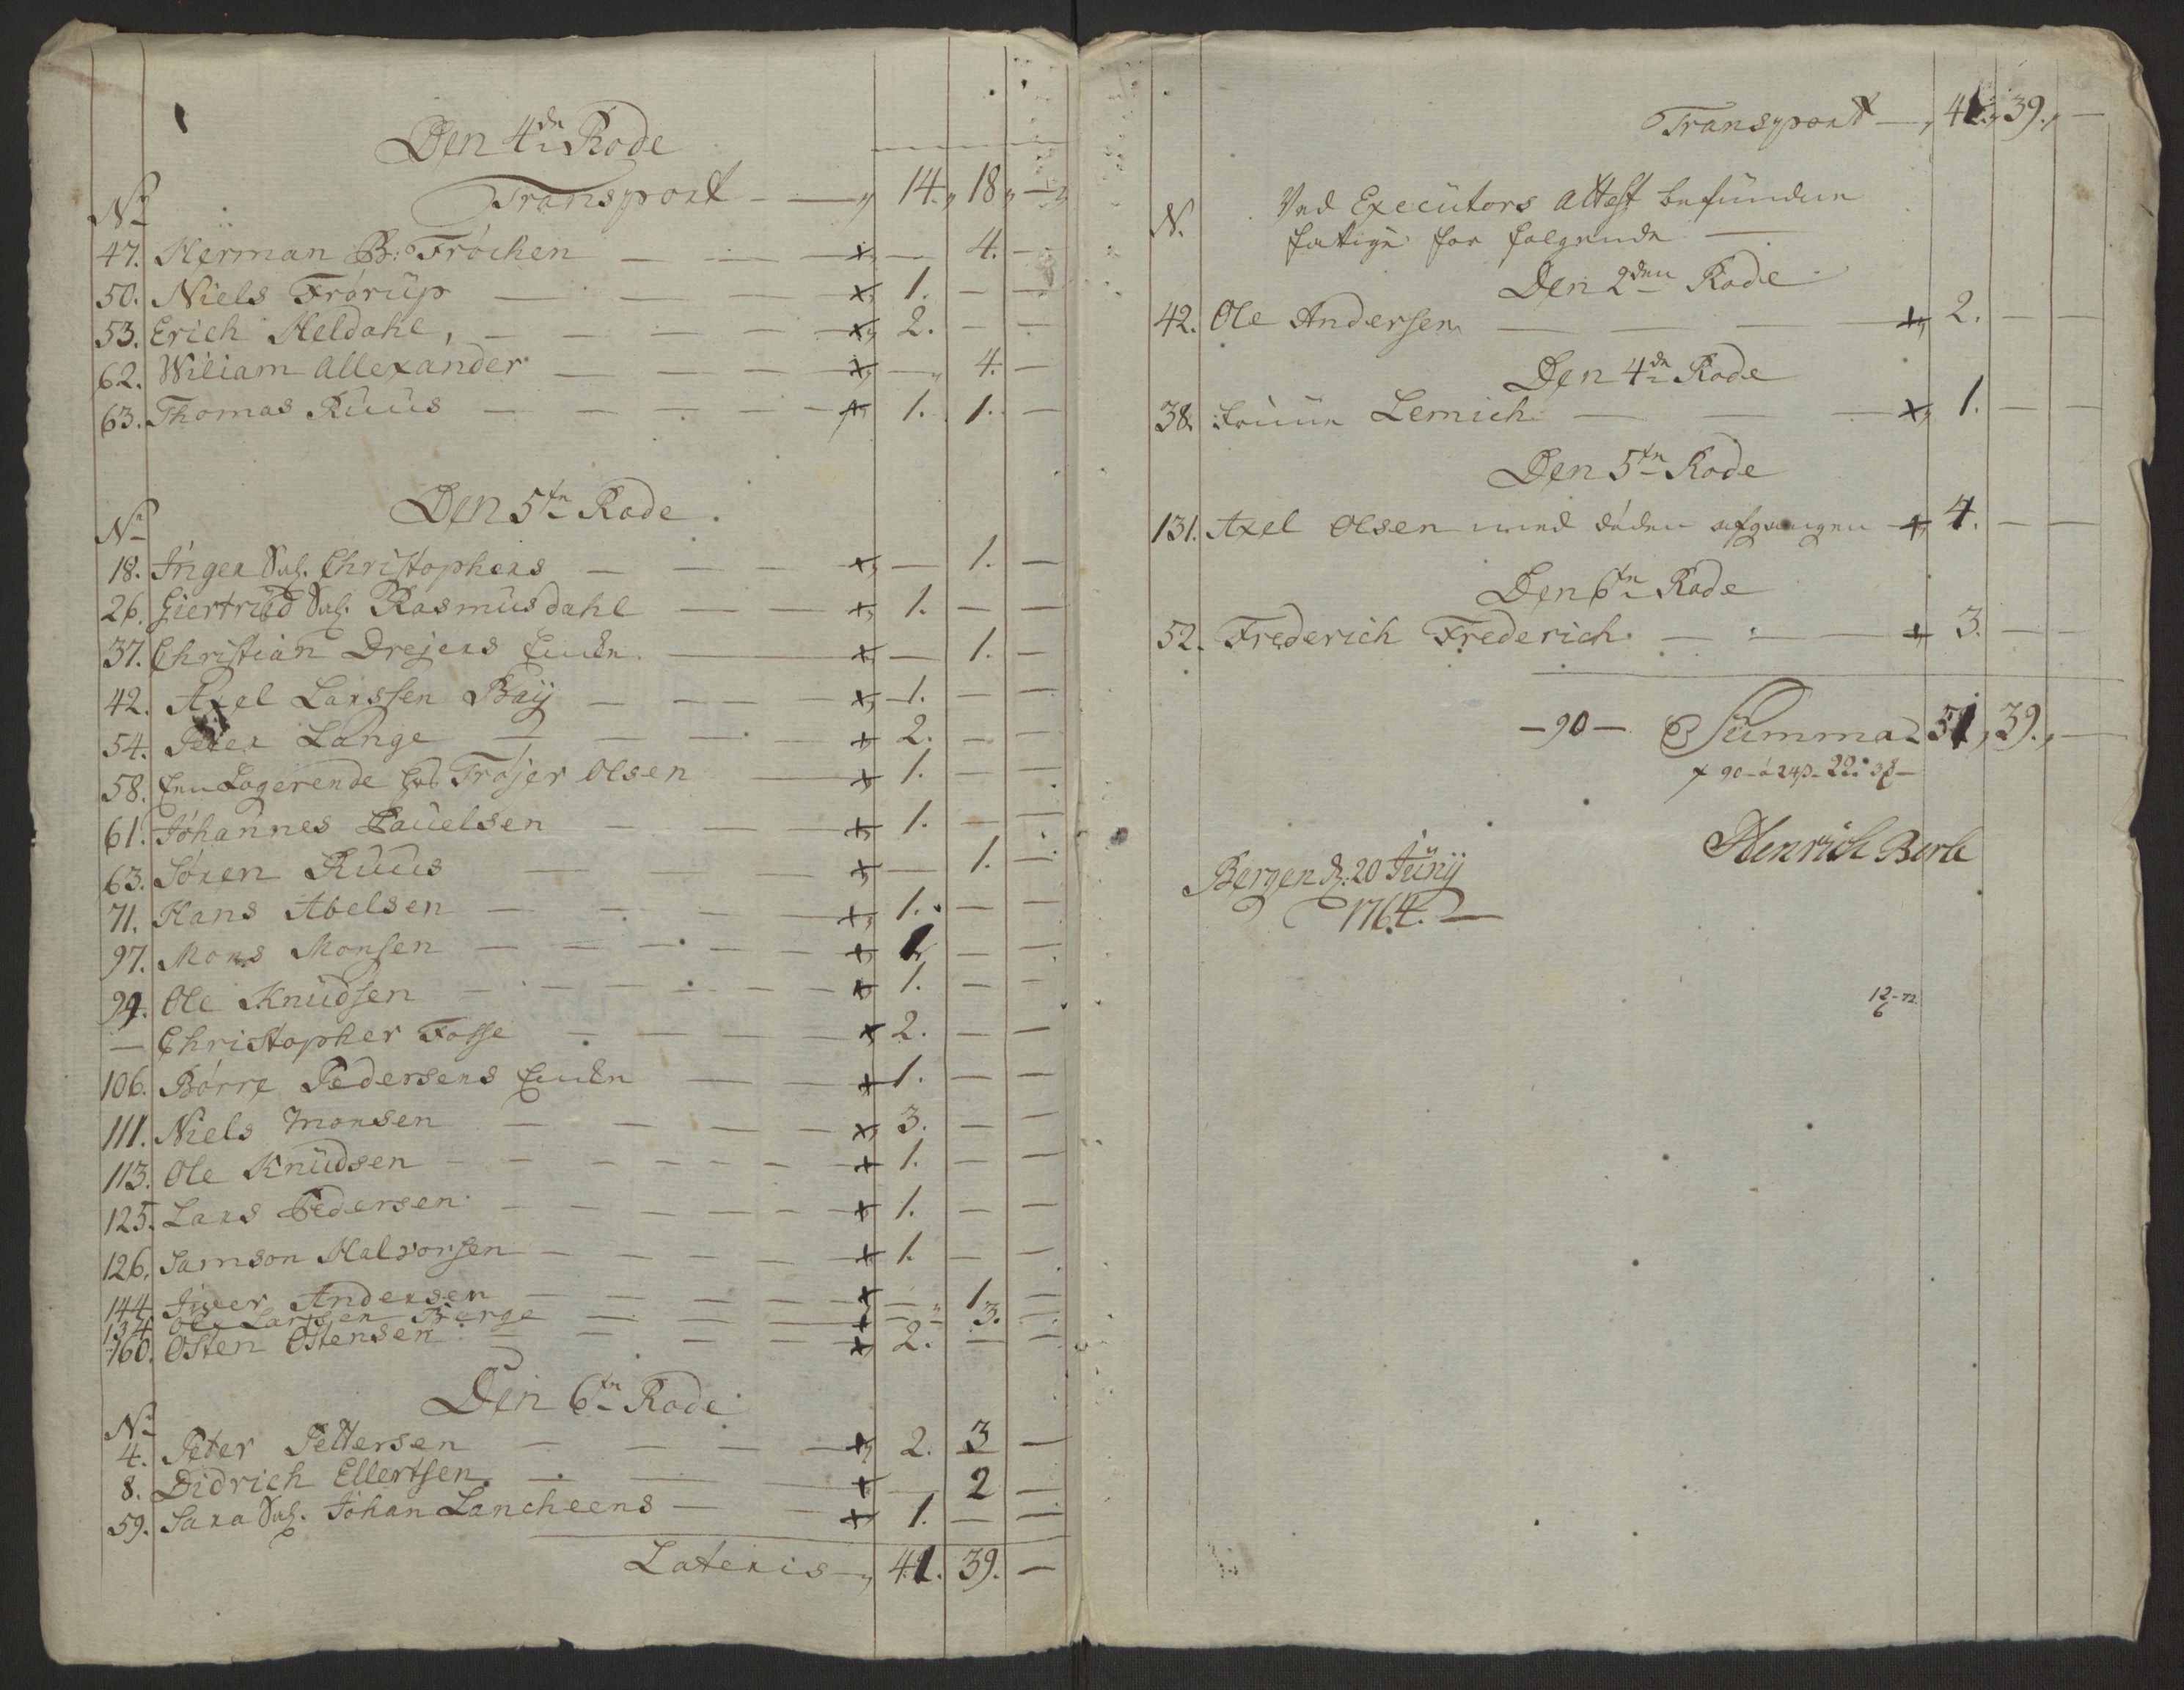 Den 4de Rode
Transport — " 14. " 18 " — "
No
47. Herman B: Fröchen — — — x " — 4. —
50. Niels Frörüp — — — x " 1. — —
53. Erich Heldahl, — — — — x " 2. — —
62. Wiliam Allexander — — — x " — " 4. —
63. Thomas Ruüs — — — — x " 1. 1. —
Den 5te Rode.
No
18. Inger Sal. Christophers — — — x " — 1. —
26. Giertrüd Sal. Rasmüs dahl — — x " 1. — —
37. Christian Drejers Encke — x " — 1. —
42. Axel Larssen Baÿ — — — x " 1. — —
54. Peter Lange — — — x 2. — —
58. En Logerende hos Trojer Olsen — x 1. — —
61. Johannes Pauelsen — — — x 1. — —
63. Sören Ruüs — — — x — 1. —
71. Hans Abelsen — — — — x " 1. — —
97. Mons Monsen — — — — x 1 — —
99. Ole Knüdsen — — — — x 1. — —
— Christopher Fosse — — — x 2. — —
106. Börre Pedersens Encke — — x 1. — —
111. Niels Monsen — — — — x " 3. — —
113. Ole Knüdsen — — — — x 1. — —
125. Lars Pedersen — — — — x 1. — —
126. Samson Halvorsen — — — — x 1. — —
144. Iver Andersen — — — — x — 1 —
134 Ole Larssen Berge — — — x — " 3. —
160. Osten Ostensen — — — — x 2. — —
Den 6te Rode
No
4. Peter Pettersen — — — — x " 2. 3 —
8. Didrich Ellertsen. — — — x — 2 —
59. Sara Sal. Johan Lancheens — — x 1. — —
Lateris — " 41. 39. —
Transport — " 41 " 39. " —
N. Ved Executors Attest befundne
fatige for følgende —
Den 2den Rode
42. Ole Andersen — — x " 2. — —
Den 4de Rode
38. Früüe Lemich — — — x " 1. — —
Den 5te Rode
131. Axel Olsen med döden afgangen x 4. — —
Den 6te Rode
52. Frederich Frederich — — — x 3. — —
— 90 — Summa 51 " 39. " —
x 90 - á 24 β -
Henrich Berle
Bergen d. 20 Jünÿ
1764. —
12 - 72
6